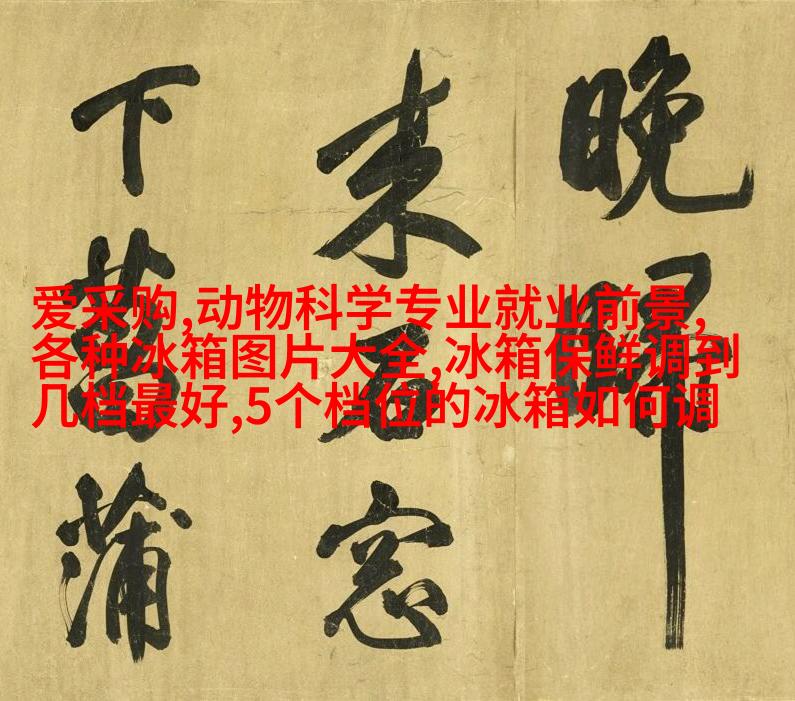 爱采购,动物科学专业就业前景,
各种冰箱图片大全,冰箱保鲜调到
几档最好,5个档位的冰箱如何调
晚
来石窓
下菖蒲